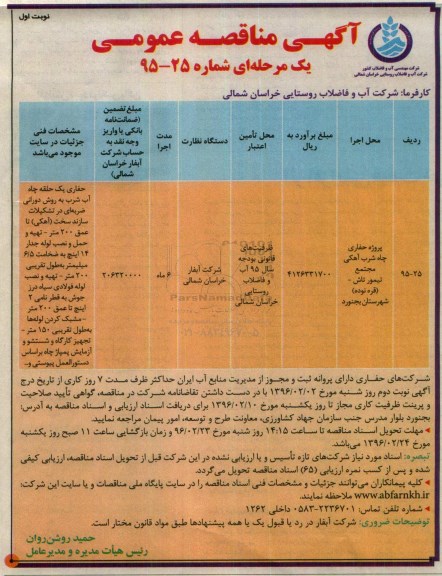 نوبت اول
آگهی مناقصه عمومی
یک مرحله‌ای شماره ۲۵-۹۵
شرکت مهندسی آب و فاضلاب کشور
شرکت آب و فاضلاب روستایی خراسان شمالی
کارفرما: شرکت آب و فاضلاب روستایی خراسان شمالی
ردیف
محل اجرا
مبلغ برآورد به ریال
محل تأمین اعتبار
دستگاه نظارت
مدت اجرا
مبلغ تضمین (ضمانت‌نامه بانکی یا واریز وجه نقد به حساب شرکت آبفار خراسان شمالی)
مشخصات فنی جزئیات در سایت موجود می‌باشد
۹۵-۲۵
پروژه حفاری
چاه شرب آهکی
مجتمع
تیمور تاش -
(قره نوده)
شهرستان بجنورد
۴۱۲۶۳۳۱۷۰۰
ظرفیت‌های
قانونی بودجه
سال ۹۵ آب
و فاضلاب
روستایی
خراسان شمالی
شرکت آبفار
خراسان شمالی
۶ ماه
۲۰۶۳۲۰۰۰۰
حفاری یک حلقه چاه
آب شرب به روش دورانی
ضربه‌ای در تشکیلات
سازند سخت (آهکی) تا
عمق ۲۰۰ متر - تهیه و
حمل و نصب لوله جدار
۱۴ اینچ به ضخامت ۶/۵
میلیمتر به‌طول تقریبی
۲۰۰ متر - تهیه و نصب
لوله فولادی سیاه درز
جوش به قطر نامی ۲
اینچ تا عمق ۲۰۰ متر
- مشبک کردن لوله‌ها
به‌طول تقریبی ۱۵۰ متر -
تجهیز کارگاه و شستشو و
آزمایش پمپاژ چاه براساس
دستورالعمل پیوستی و-
شرکت‌های حفاری دارای پروانه ثبت و مجوز از مدیریت منابع آب ایران حداکثر ظرف مدت ۷ روز کاری از تاریخ درج
آگهی نوبت دوم روز شنبه مورخ ۱۳۹۶/۰۲/۰۲ با در دست داشتن تقاضانامه شرکت در مناقصه، گواهی تأیید صلاحیت
و پرینت ظرفیت کاری مجاز تا روز یکشنبه مورخ ۱۳۹۶/۰۲/۱۰ برای دریافت اسناد ارزیابی و اسناد مناقصه به آدرس:
بجنورد بلوار مدرس جنب سازمان جهاد کشاورزی، معاونت طرح و توسعه، امور پیمان مراجعه نمایید.
مهلت تحویل اسناد مناقصه تا ساعت ۱۴:۱۵ روز شنبه مورخ ۹۶/۰۲/۲۳ و زمان بازگشایی ساعت ۱۱ صبح روز یکشنبه
مورخ ۱۳۹۶/۰۲/۲۴ می‌باشد.
تبصره: اسناد مورد نیاز شرکت‌های تازه تأسیس و یا ارزیابی نشده در این شرکت قبل از تحویل اسناد مناقصه، ارزیابی کیفی
شده و پس از کسب نمره ارزیابی (۶۵) اسناد مناقصه تحویل می‌گردد.
کلیه پیمانکاران می‌توانند جزئیات و مشخصات فنی اسناد مناقصه را در سایت پایگاه ملی مناقصات و یا سایت این شرکت:
www.abfarnkh.ir ملاحظه نمایند.
شماره تلفن تماس: ۲۲۳۶۷۰۱-۰۵۸۳ داخلی ۱۲۶۲
توضیحات ضروری: شرکت آبفار در رد یا قبول یک یا همه پیشنهادها طبق مواد قانون مختار است.
حمید روشن‌روان
رئیس هیأت مدیره و مدیرعامل